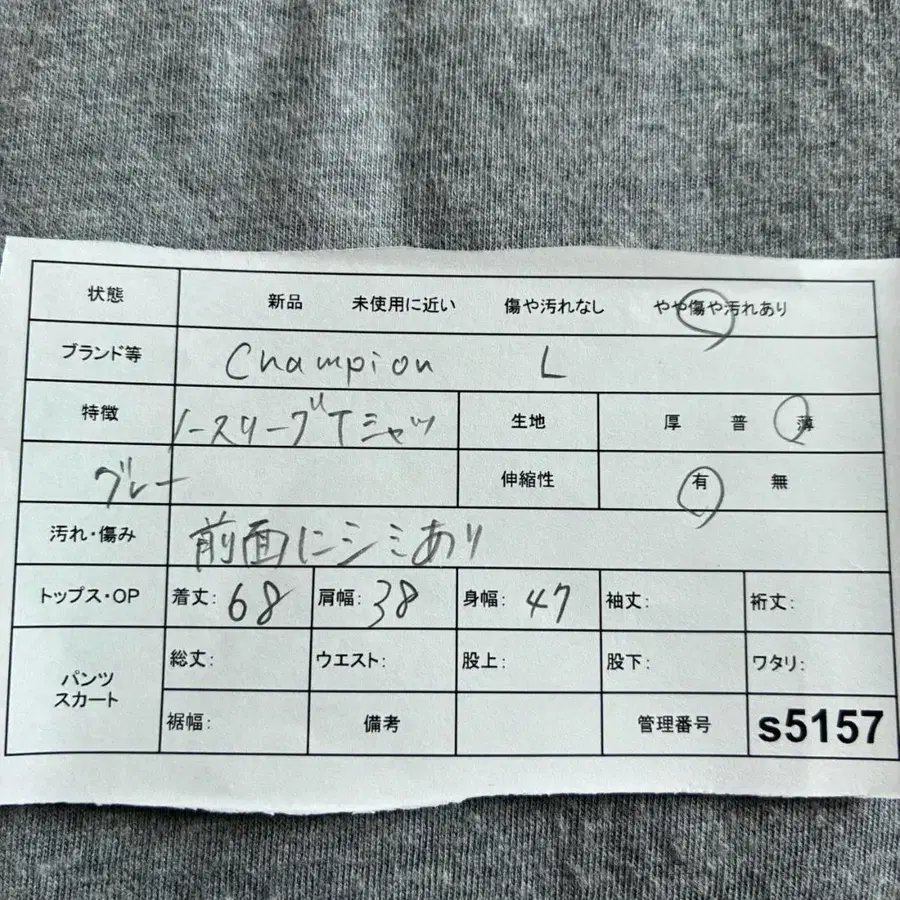 状態 新品 未使用に近い 傷や汚れなし やや傷や汚れあり
ブランド等 Champion L
特徴 ノースリーブTシャツ 生地 厚 普 薄
グレー 伸縮性 有 無
汚れ・傷み 前面にシミあり
トップス・OP 着丈: 68 肩幅: 38 身幅: 47 袖丈: 裄丈:
パンツ スカート 総丈: ウエスト: 股上: 股下: ワタリ:
裾幅: 備考 管理番号 s5157